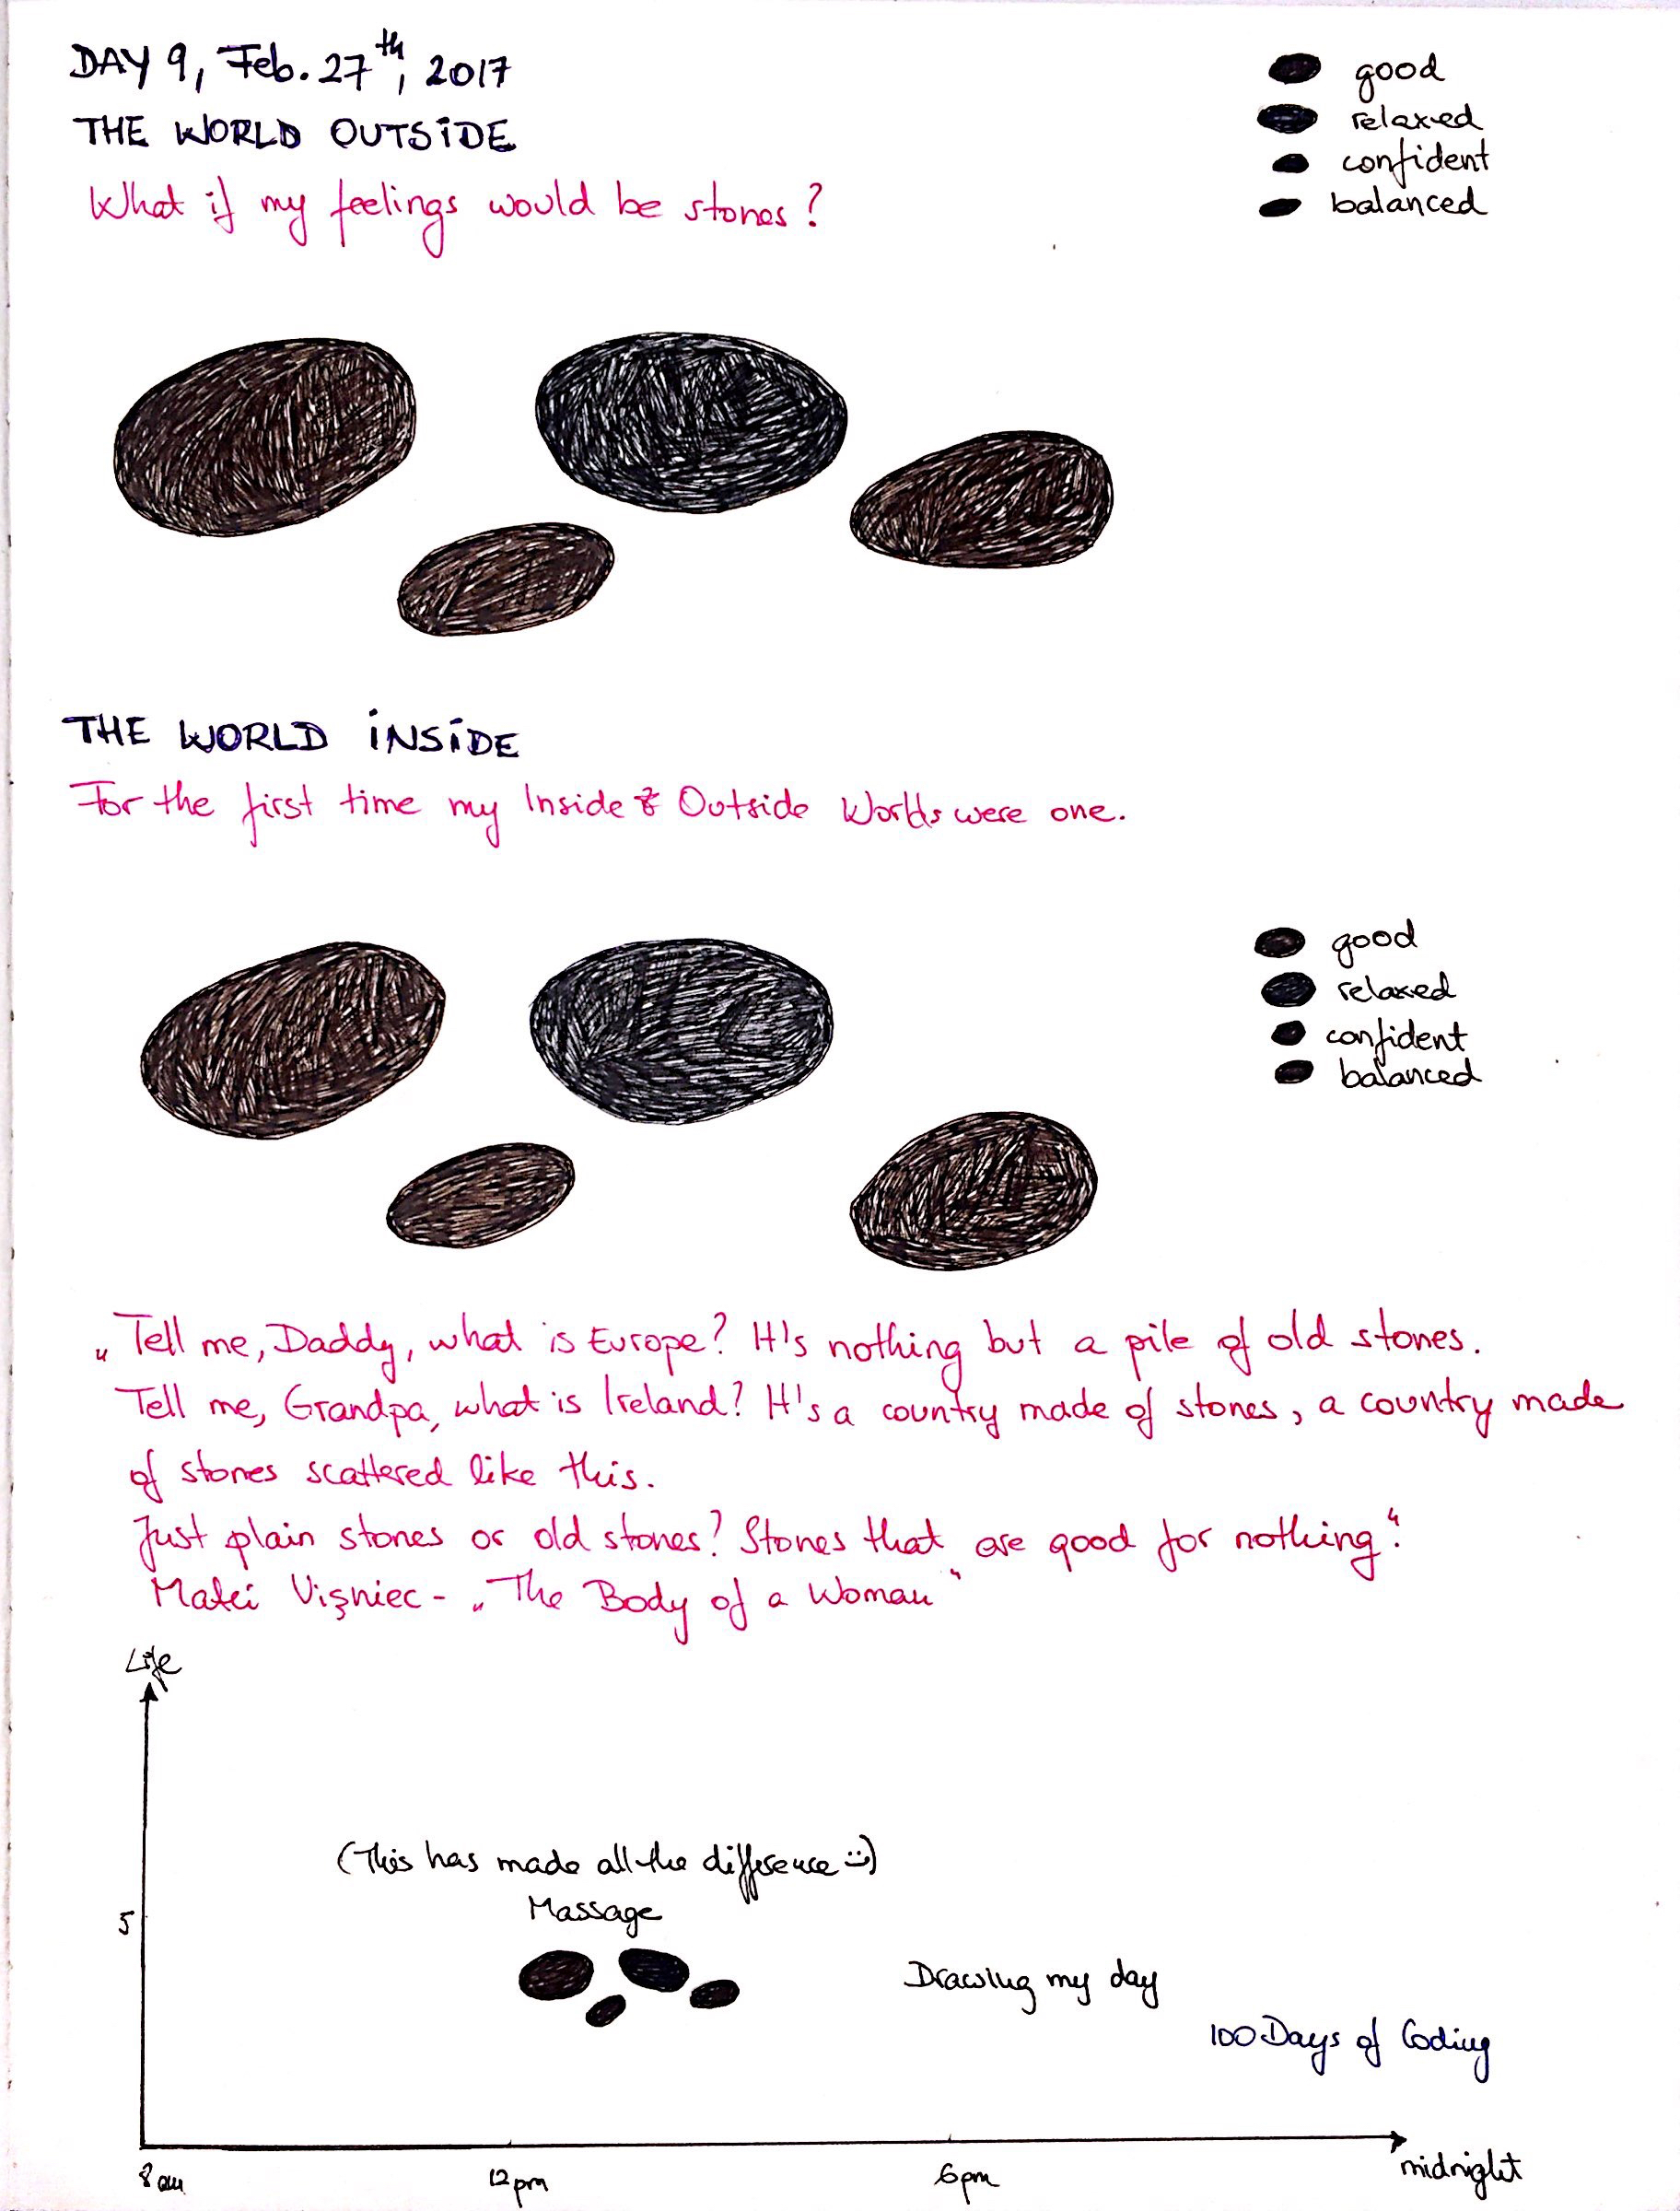 DAY 9, Feb. 27th, 2017
THE WORLD OUTSIDE
What if my feelings would be stones?
good
relaxed
confident
balanced
THE WORLD INSIDE
For the first time my Inside & Outside Worlds were one.
good
relaxed
confident
balanced
„Tell me, Daddy, what is Europe? It's nothing but a pile of old stones.
Tell me, Grandpa, what is Ireland? It's a country made of stones, a country made
of stones scattered like this.
Just plain stones or old stones? Stones that are good for nothing“.
Matei Vişniec - „The Body of a Woman“
Life
(This has made all the difference :))
Massage
5
Drawing my day
100 Days of Coding
8 am
12 pm
6 pm
midnight